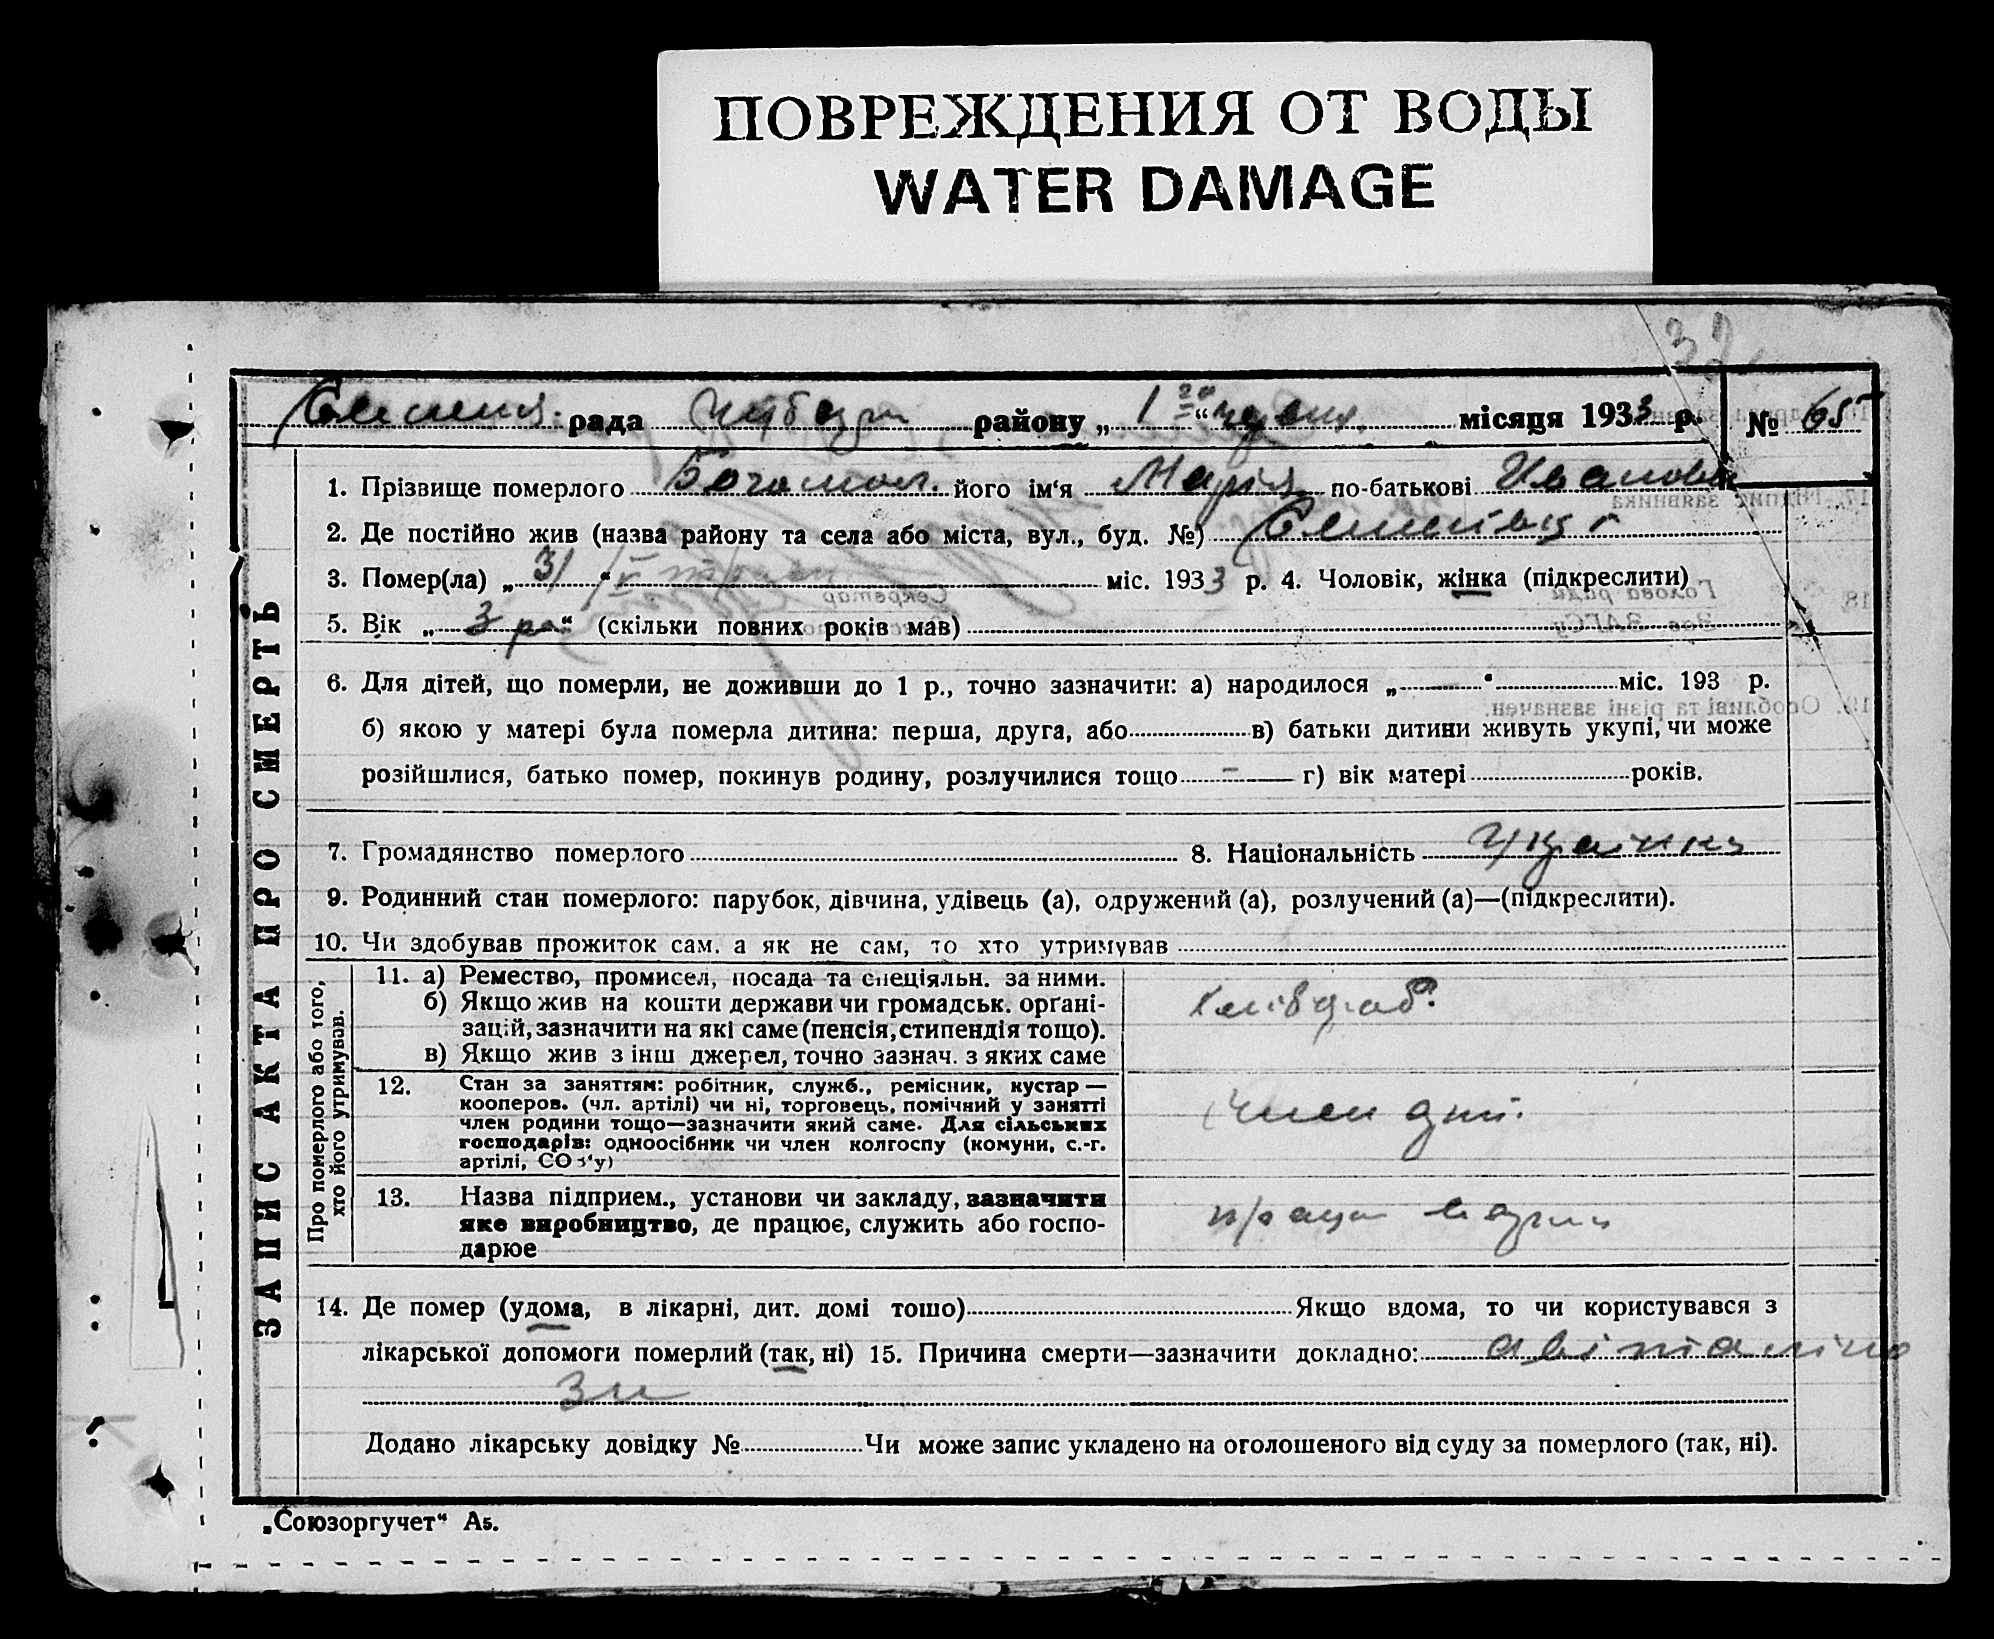 ПОВРЕЖДЕНИЯ ОТ ВОДЫ
WATER DAMAGE
32
рада району „ 1го “ червня місяця 1933 р. № 65
1. Прізвище померлого Богомол. його ім‘я Марія по-батькові Иванов
2. Де постійно жив (назва району та села або міста, вул., буд. №)
3. Помер(ла) „ 31 “ /V міс. 1933 р. 4. Чоловік, жінка (підкреслити)
5. Вік „ 3 ро “ (скільки повних років мав)
6. Для дітей, що померли, не доживши до 1 р., точно зазначити: а) народилося „ — “ міс. 193 р.
б) якою у матері була померла дитина: перша, друга, або в) батьки дитини живуть укупі, чи може
розійшлися, батько помер, покинув родину, розлучилися тощо — г) вік матері років.
7. Громадянство померлого 8. Національність Українка
9. Родинний стан померлого: парубок, дівчина, удівець (а), одружений (а), розлучений (а)—(підкреслити).
10. Чи здобував прожиток сам. а як не сам, то хто утримував
ЗАПИС АКТА ПРО СМЕРТЬ
Про померлого або того, хто його утримував.
11. а) Ремество, промисел, посада та спеціяльн. за ними.
б) Якщо жив на кошти держави чи громадськ. орґані-
зацій, зазначити на які саме (пенсія, стипендія тощо).
в) Якщо жив з інш джерел, точно зазнач. з яких саме
хлібороб.
12. Стан за заняттям: робітник, служб., ремісник, кустар —
кооперов. (чл. артілі) чи ні, торговець, помічний у занятті
член родини тощо—зазначити який саме. Для сільських
господарів: одноосібник чи член колгоспу (комуни, с.-г.
артілі, СОЗ‘у)
член
13. Назва підприєм., установи чи закладу, зазначити
яке виробництво, де працює, служить або госпо-
дарює
14. Де помер (удома, в лікарні, дит. домі тошо) Якщо вдома, то чи користувався з
лікарської допомоги померлий (так, ні) 15. Причина смерти—зазначити докладно: авітаміно
зи
Додано лікарську довідку № Чи може запис укладено на оголошеного від суду за померлого (так, ні).
„Союзоргучет“ А5.